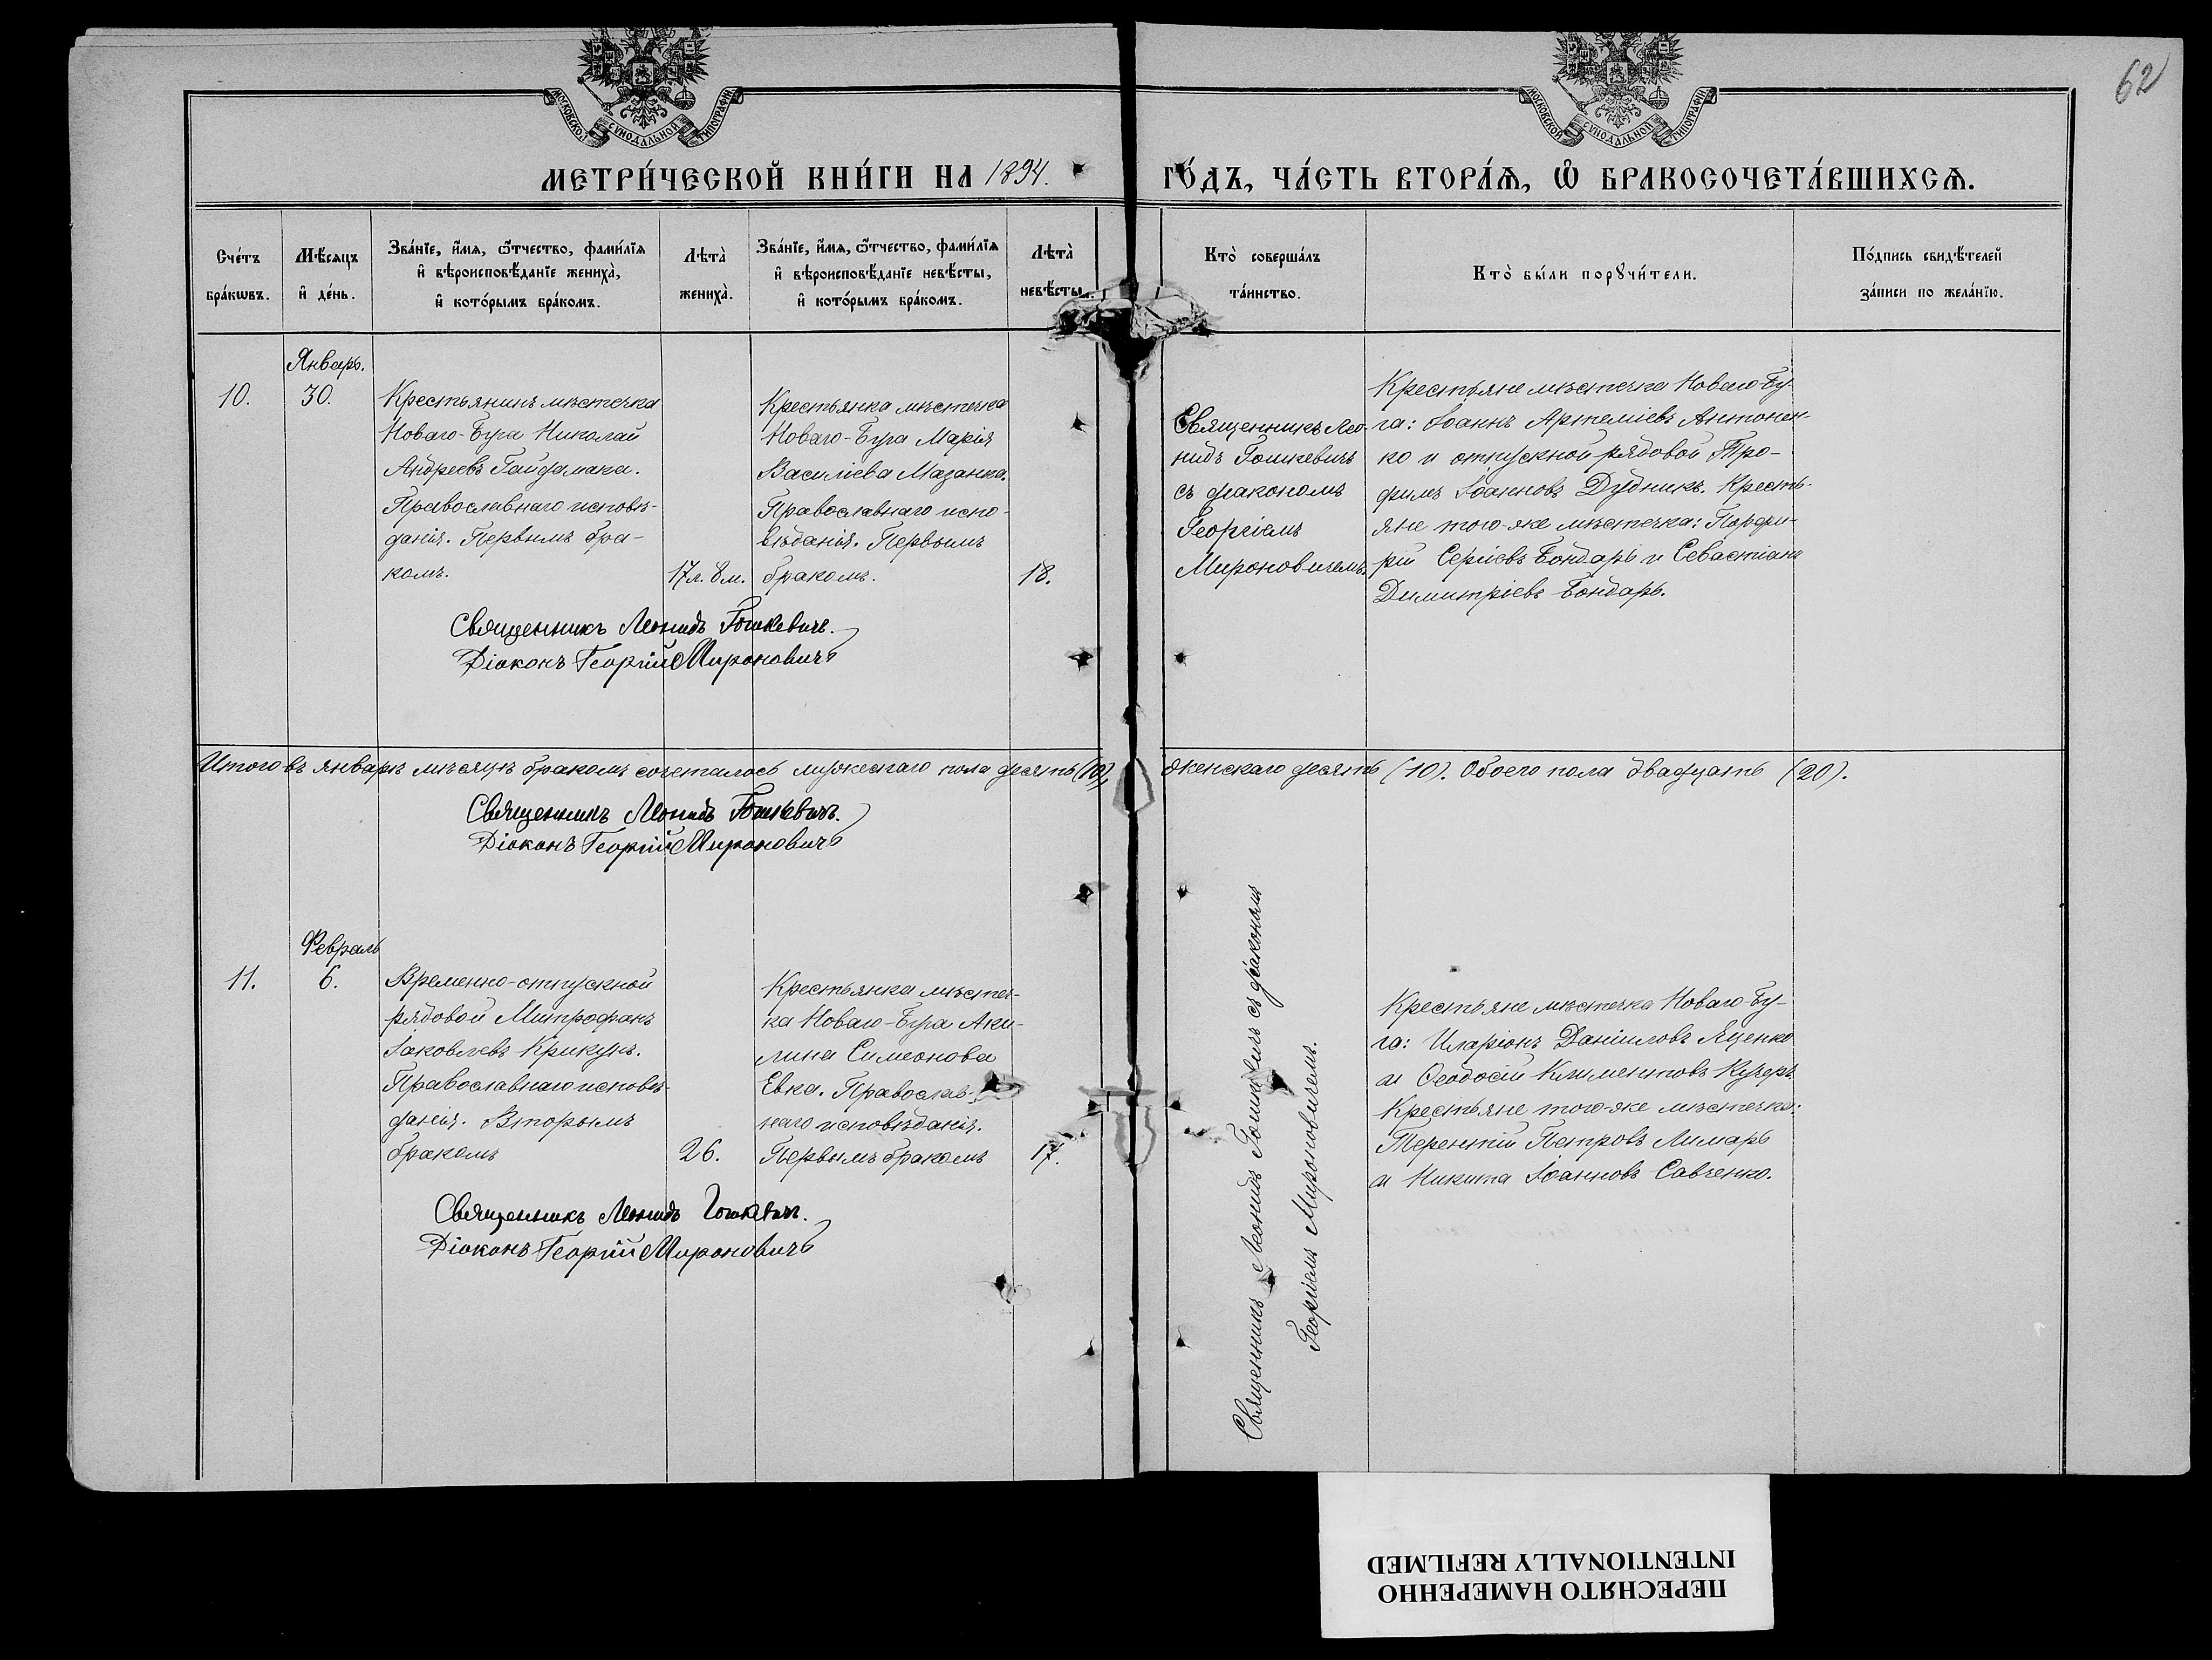 62
МОСКОВСКОЙ СѴНОДАЛЬНОЙ ТИПОГРАФІИ
МОСКОВСКОЙ СѴНОДАЛЬНОЙ ТИПОГРАФІИ
МЕТРИ́ЧЕСКОЙ КНИ́ГИ НА 1894. ГО́ДЪ, ЧА́СТЬ ВТОРА́Ѧ, Ѽ БРАКОСОЧЕТА́ВШИХСѦ.
Сче́тъ
бра́кѡвъ.
Мѣ́сяцъ
и҆ де́нь.
Зва́нїе, и҆́мѧ, ѻ҆́тчество, фами́лїѧ
и҆ вѣроисповѣ́данїе жениха̀,
и҆ кото́рымъ бра́комъ.
Лѣта̀
жениха̀.
Зва́нїе, и҆́мѧ, ѻ҆́тчество, фами́лїѧ
и҆ вѣроисповѣ́данїе невѣ́сты,
и҆ кото́рымъ бра́комъ.
Лѣта̀
невѣ́сты.
Кто̀ соверша́лъ
та́инство.
Кто̀ бы́ли порꙋчи́тели.
По́дпись свидѣ́телей
за́писи по жела́нїю.
Январь.
10.
30.
Крестьянинъ мѣстечка
Новаго-Буга Николай
Андреевъ Гайдамака.
Православнаго исповѣ-
данія. Первымъ бра-
комъ.
17 л. 8 м.
Крестьянка мѣстечка
Новаго-Буга Марія
Василіева Мазанка.
Православнаго испо-
вѣданія. Первымъ
бракомъ.
18.
Священникъ Лео-
нидъ Гошкевичъ
съ діакономъ
Георгіемъ
Мироновичемъ.
Крестьяне мѣстечка Новаго-Бу-
га: Іоаннъ Артеміевъ Антонен-
ко и отпускной рядовой Тро-
фимъ Іоанновъ Дудникъ. Кресть-
яне того-же мѣстечка: Порфи-
рій Сергіевъ Бондарь и Севастіанъ
Димитріевъ Бондарь.
Священникъ Леонидъ Гошкевичъ.
Діаконъ Георгій Мироновичъ
Итого въ январѣ мѣсяцѣ бракомъ сочеталось мужескаго пола десять (10), женскаго десять (10). Обоего пола двадцать (20).
Священникъ Леонидъ Гошкевичъ.
Діаконъ Георгій Мироновичъ
Февраль
11.
6.
Временно-отпускной
рядовой Митрофанъ
Іаковлевъ Крикунъ.
Православнаго исповѣ-
данія. Вторымъ
бракомъ
26.
Крестьянка мѣстеч-
ка Новаго-Буга Аки-
лина Симеонова
Евка. Православ-
наго исповѣданія.
Первымъ бракомъ
17.
Священникъ Леонидъ Гошкевичъ съ діакономъ
Георгіемъ Мироновичемъ.
Крестьяне мѣстечка Новаго-Бу-
га: Иларіонъ Даніиловъ Яценко
и Ѳеодосій Климентовъ Кучеръ.
Крестьяне того-же мѣстечка:
Терентій Петровъ Лимарь
и Никита Іоанновъ Савченко.
Священникъ Леонидъ Гошкевичъ.
Діаконъ Георгій Мироновичъ
ПЕРЕСНЯТО НАМЕРЕННО
INTENTIONALLY REFILMED